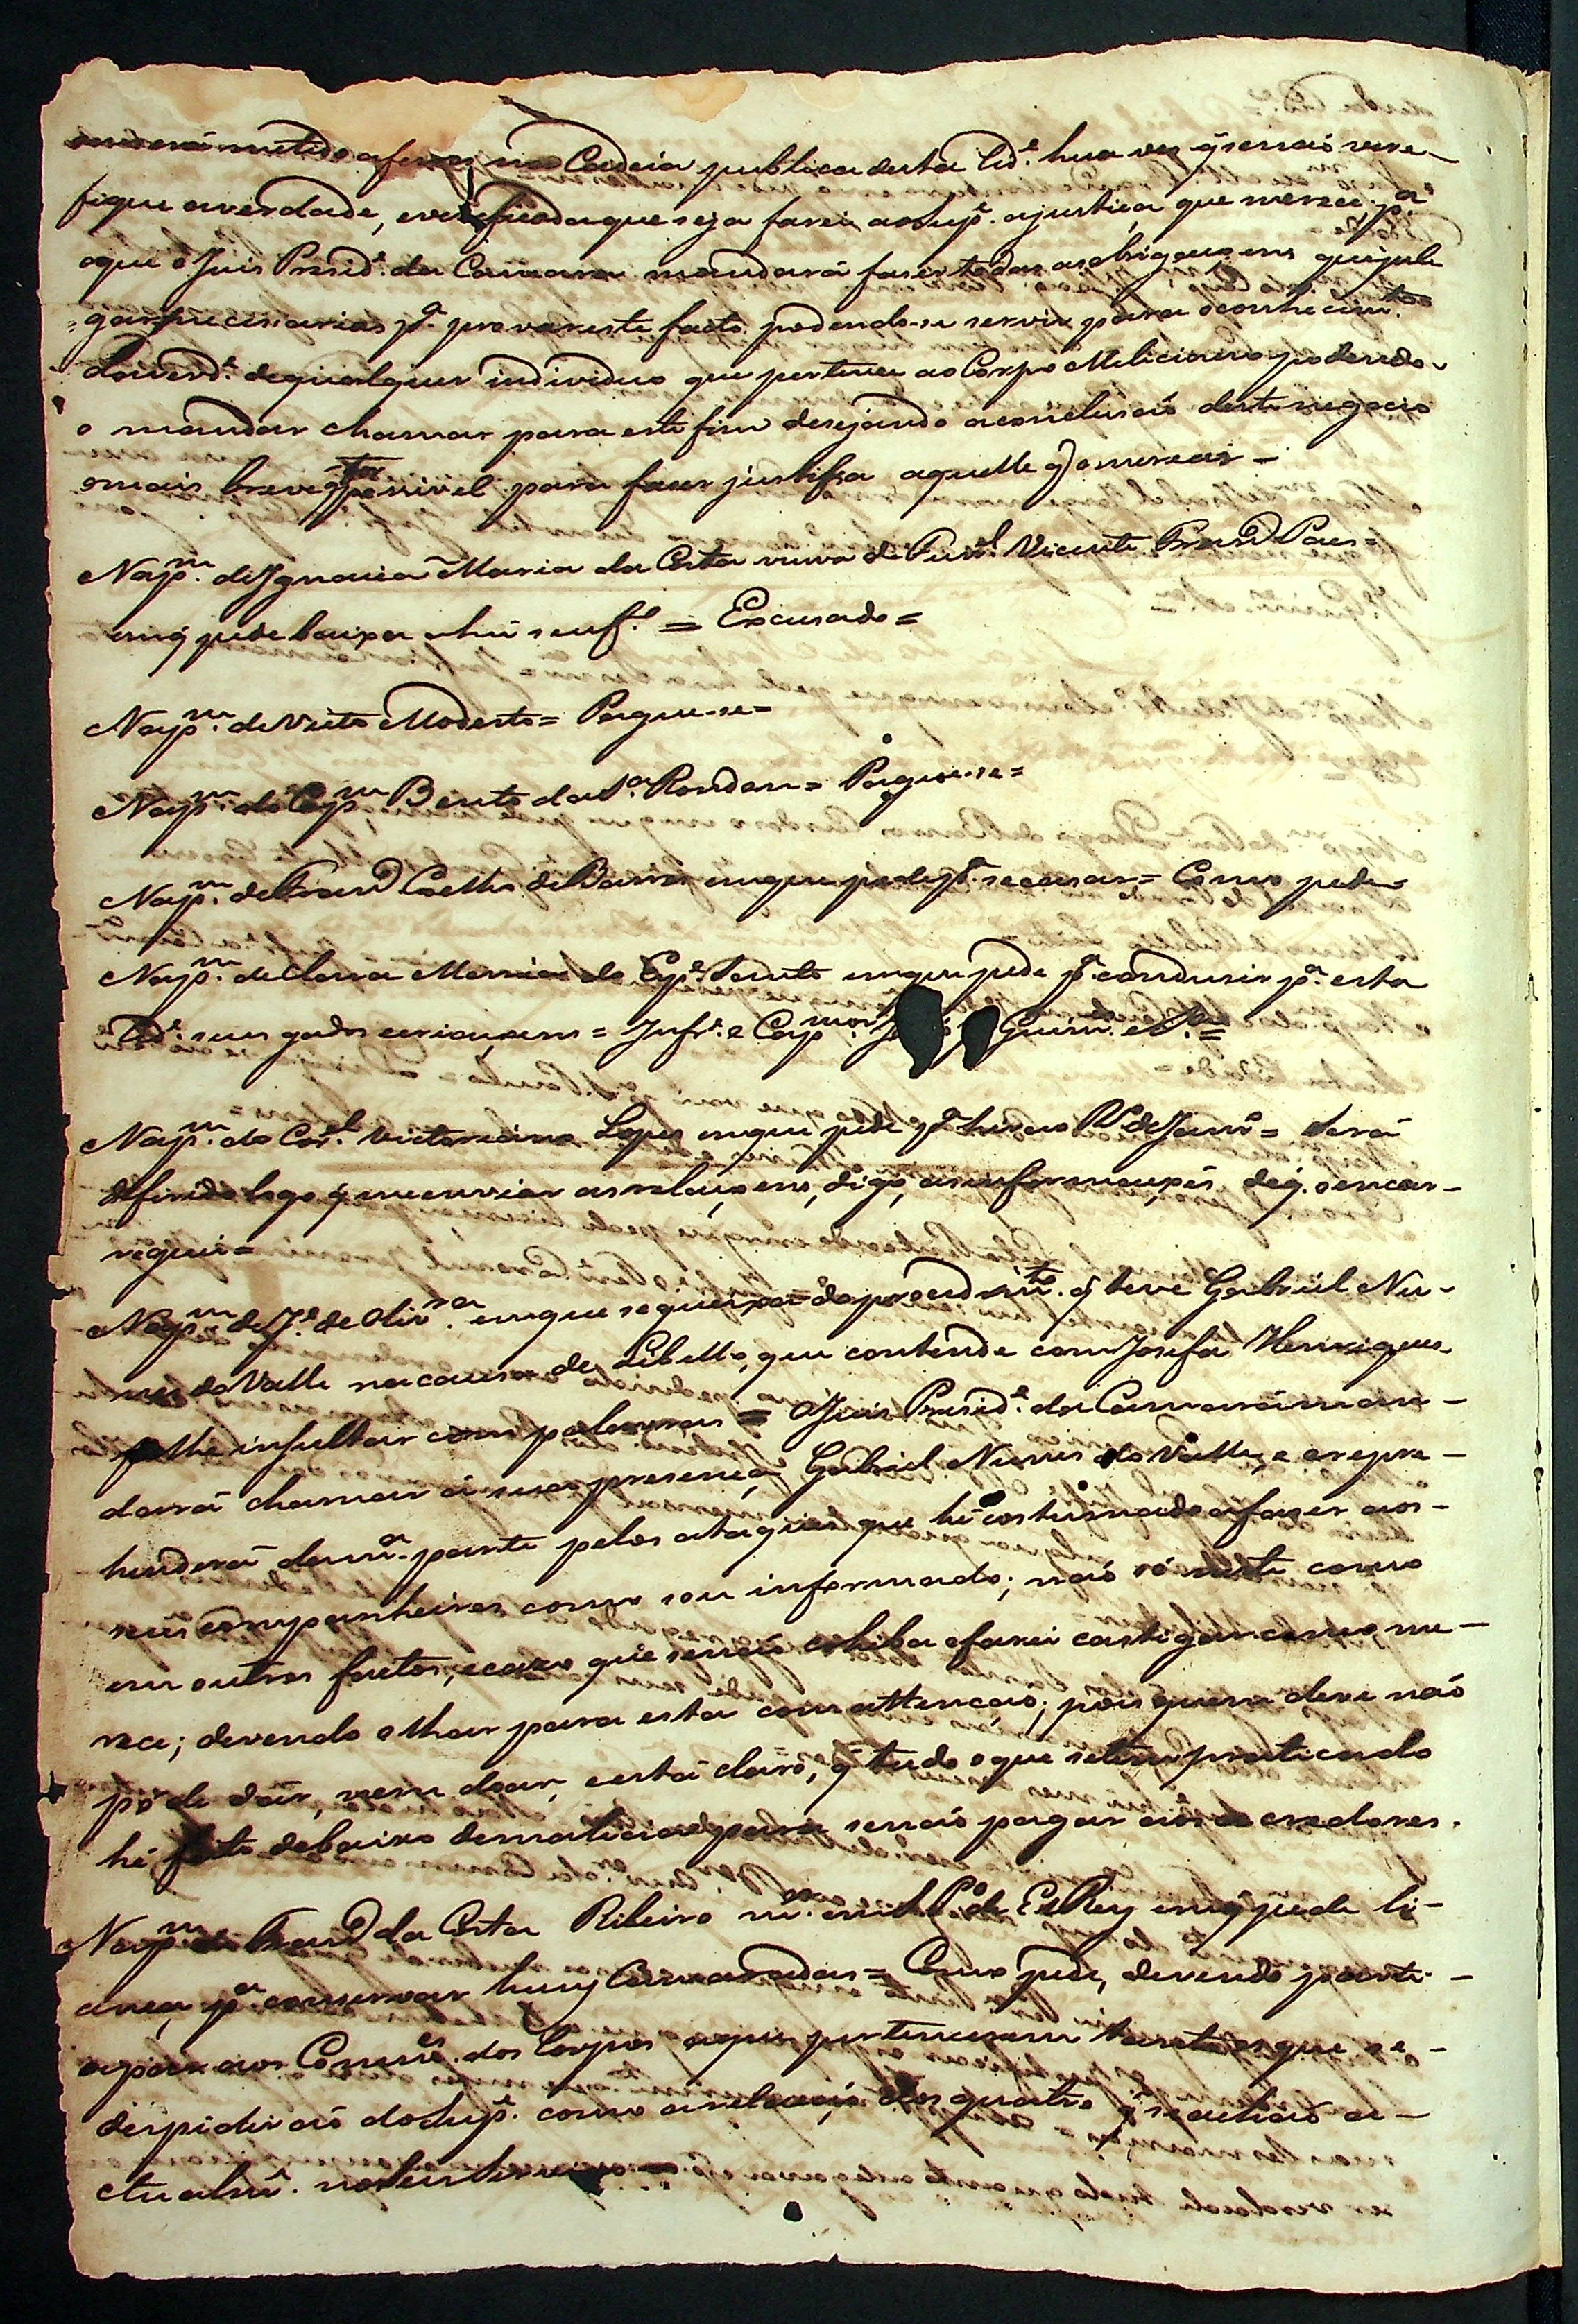 será metido a ferros na Cadeia publica desta Cid.e hua vez q̃ senaõ vere-
fique averdade, everificada que seja farei aoSup.e ajustiça, que merecer, p.a
oque oJuis Presid.e da Camara mandará faser todas asobrigaçoens quejul-
gar necessarias p.a provar este facto podendo-se servir para oconhecim.to
daverd.e dequalquer individuo que pertence ao Corpo Meliciano podendo-
o mandar chamar para este fim desejando aconclusaõ deste negocio
omais breve possivel para faser justiça aquelle q̃ amerecer-
Nap.m deIgnacia Maria da Costa viuva do Fur.el Vicente Fran.co Paes=
emq̃ pede baixa ahũ seuf.o = Excusado=
Nap.m deVieto Modesto= Pague-se=
Nap.m do Cap.m Bento daS.a Rondon= Pague-se=
Nap.m deFran.co Coelho deBarros emque pede p.a secasar= Como pede
Nap.m deClara Maria do Esp.o Santo emque pede p.a condusir p.a esta
Cid.e seus gados ecriaçoens = Inf.e o Cap.m mor J Guim.es eS.a=
Nap.m do Cor.el Victoriano Lopes emque pede p.a hir ao R.o deJan.ro= Será
deferido logo q̃ meenviar asrelaçoens, digo, asinformaçoẽs deq. oencar-
reguei=
Nap.m de J.e de Oliv.ra emque sequeixa doproced.m.to q̃ teve Gabriel Nu-
nes doValle nacausa de Libello, que contende com Josefa Henriques
p.a lhe insultar com palavras = OJuis Presid.e da Camara man-
dará chamar á sua presença Gabriel Nunes do Valle, e orepre-
henderá dem.a parte pelos ataques que hé costumado afaser aos-
seus companheiros como sou informado; naõ só neste como
em outros factos; ecaso que senaõ cohiba ofarei castigar como me-
rece; devendo olhar para esta com attençaõ; pois quem deve naõ
póde dar, nem doar, eestá claro, q̃ tudo oque setem praticado
hé feito debaixo demalicia para senaõ pagar aos credores.
Nap.m de Fran.co da Costa Ribeiro m.or emS. P.o de ElRey emq̃ pede li-
cença p.a conservar huns Camaradas = Como pede, devendo parti-
cipar aos Com.es dos Corpos aque pertencerem tanto osque se-
despidiraõ doSup.e como arelaçaõ dos quatro q̃ seachaõ a-
ctualm.e